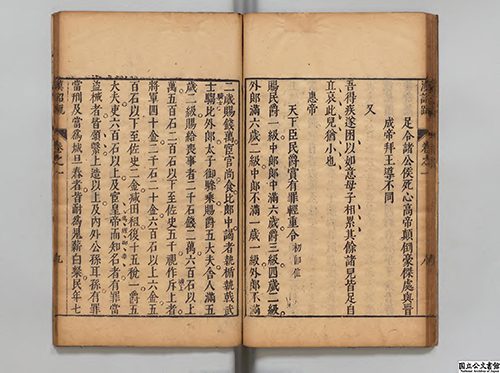 足令諸公侯死心高帝顛倒豪傑處與晉
成帝拜王導不同
又
吾得疾遂困以如意母子相累其餘諸兒皆足自
立哀此兒猶小也
惠帝
天下臣民爵賞有罪輕重令 初卽位
賜民爵一級中郎郎中滿六歲爵三級四歲二級
外郎滿六歲二級中郎不滿一歲一級外郎不滿
二歲賜錢萬宦官尚食比郎中謁者執楯執戟武
士騶比外郎太子御驂乘賜爵五大夫舍人滿五
歲二級賜給喪事者二千石錢二萬六百石以上
萬五百石二百石以下至佐史五千視作斥上者
將軍四十金二千石二十金六百石以上六金五
百石以下至佐史二金減田租復十五稅一爵五
大夫吏六百石以上及宦皇帝而知名者有罪當
盜械者皆頌繫上造以上及內外公孫耳孫有罪
當刑及當爲城旦舂者皆耐爲鬼薪白粲民年七
漢詔疏 卷之一 九
国立公文書館
National Archives of Japan